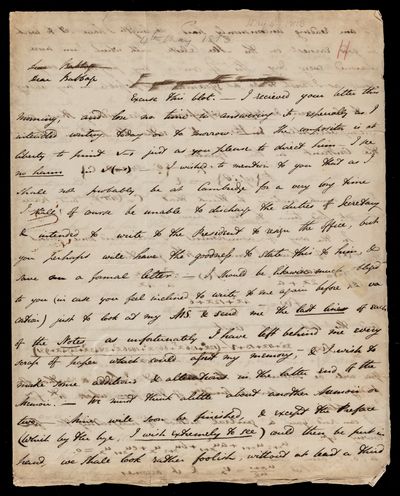 May 1813
11
Dear Babbage
Dear Babbage
Excuse this blot. — I recieved your letter this
morning, and lose no time in answering it especially as I
intended writing today or to morrow. — the compositor is at
liberty to print just as you please to direct him I see
no harm — I wished to mention to you that as I
shall not probably be at Cambridge for a very long time
I shall of course be unable to discharge the duties of Secretary
& intended to write to the President to resign the office, but
you perhaps will have the goodness to state this to him, &
save me a formal letter: — I should be likewise much oblig'd
to you (in case you feel inclined to write to me again before the
) just to look at my MS & send me the last lines of each
of the Notes, as unfortunately I have left behind me every
scrap of paper which could assist my memory, — & I wish to
make some additions & alterations in the latter end of the
Memoir. — We must think a little about another Memoir or
two. — Mine will soon be finished, & except the Preface
(which by the bye, I wish extremely to see) could then be put in
hand we shall look rather foolish, without at least a third